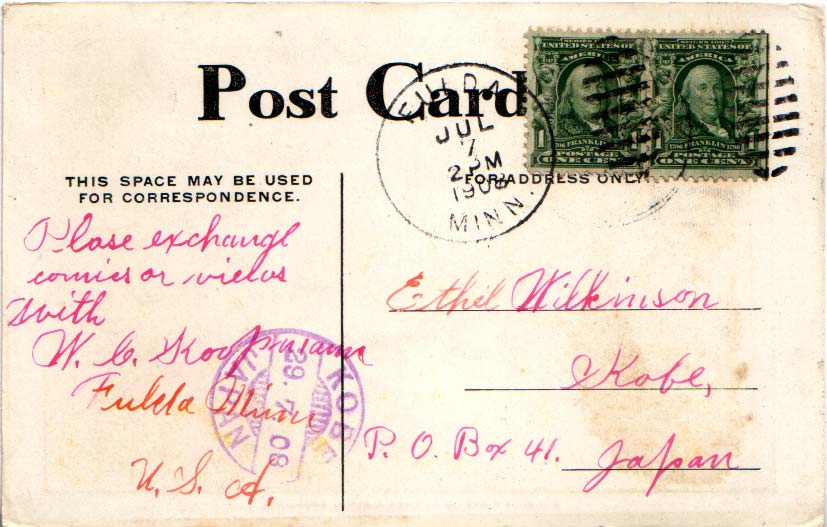 Post Card
UNITED STATES OF AMERICA
1 FRANKLIN
POSTAGE
ONE CENT
UNITED STATES OF AMERICA
1 FRANKLIN 1790
POSTAGE
ONE CENT
FULDA
JUL
7
2 PM
1908
MINN.
THIS SPACE MAY BE USED
FOR CORRESPONDENCE.
FOR ADDRESS ONLY.
Plase exchange
comics or views
with
W. C. Koopmann
Fulda Minn
U. S. A.
KOBE
29. 7. 08
Ethel Wilkinson
Kobe,
P. O. Box 41.
Japan